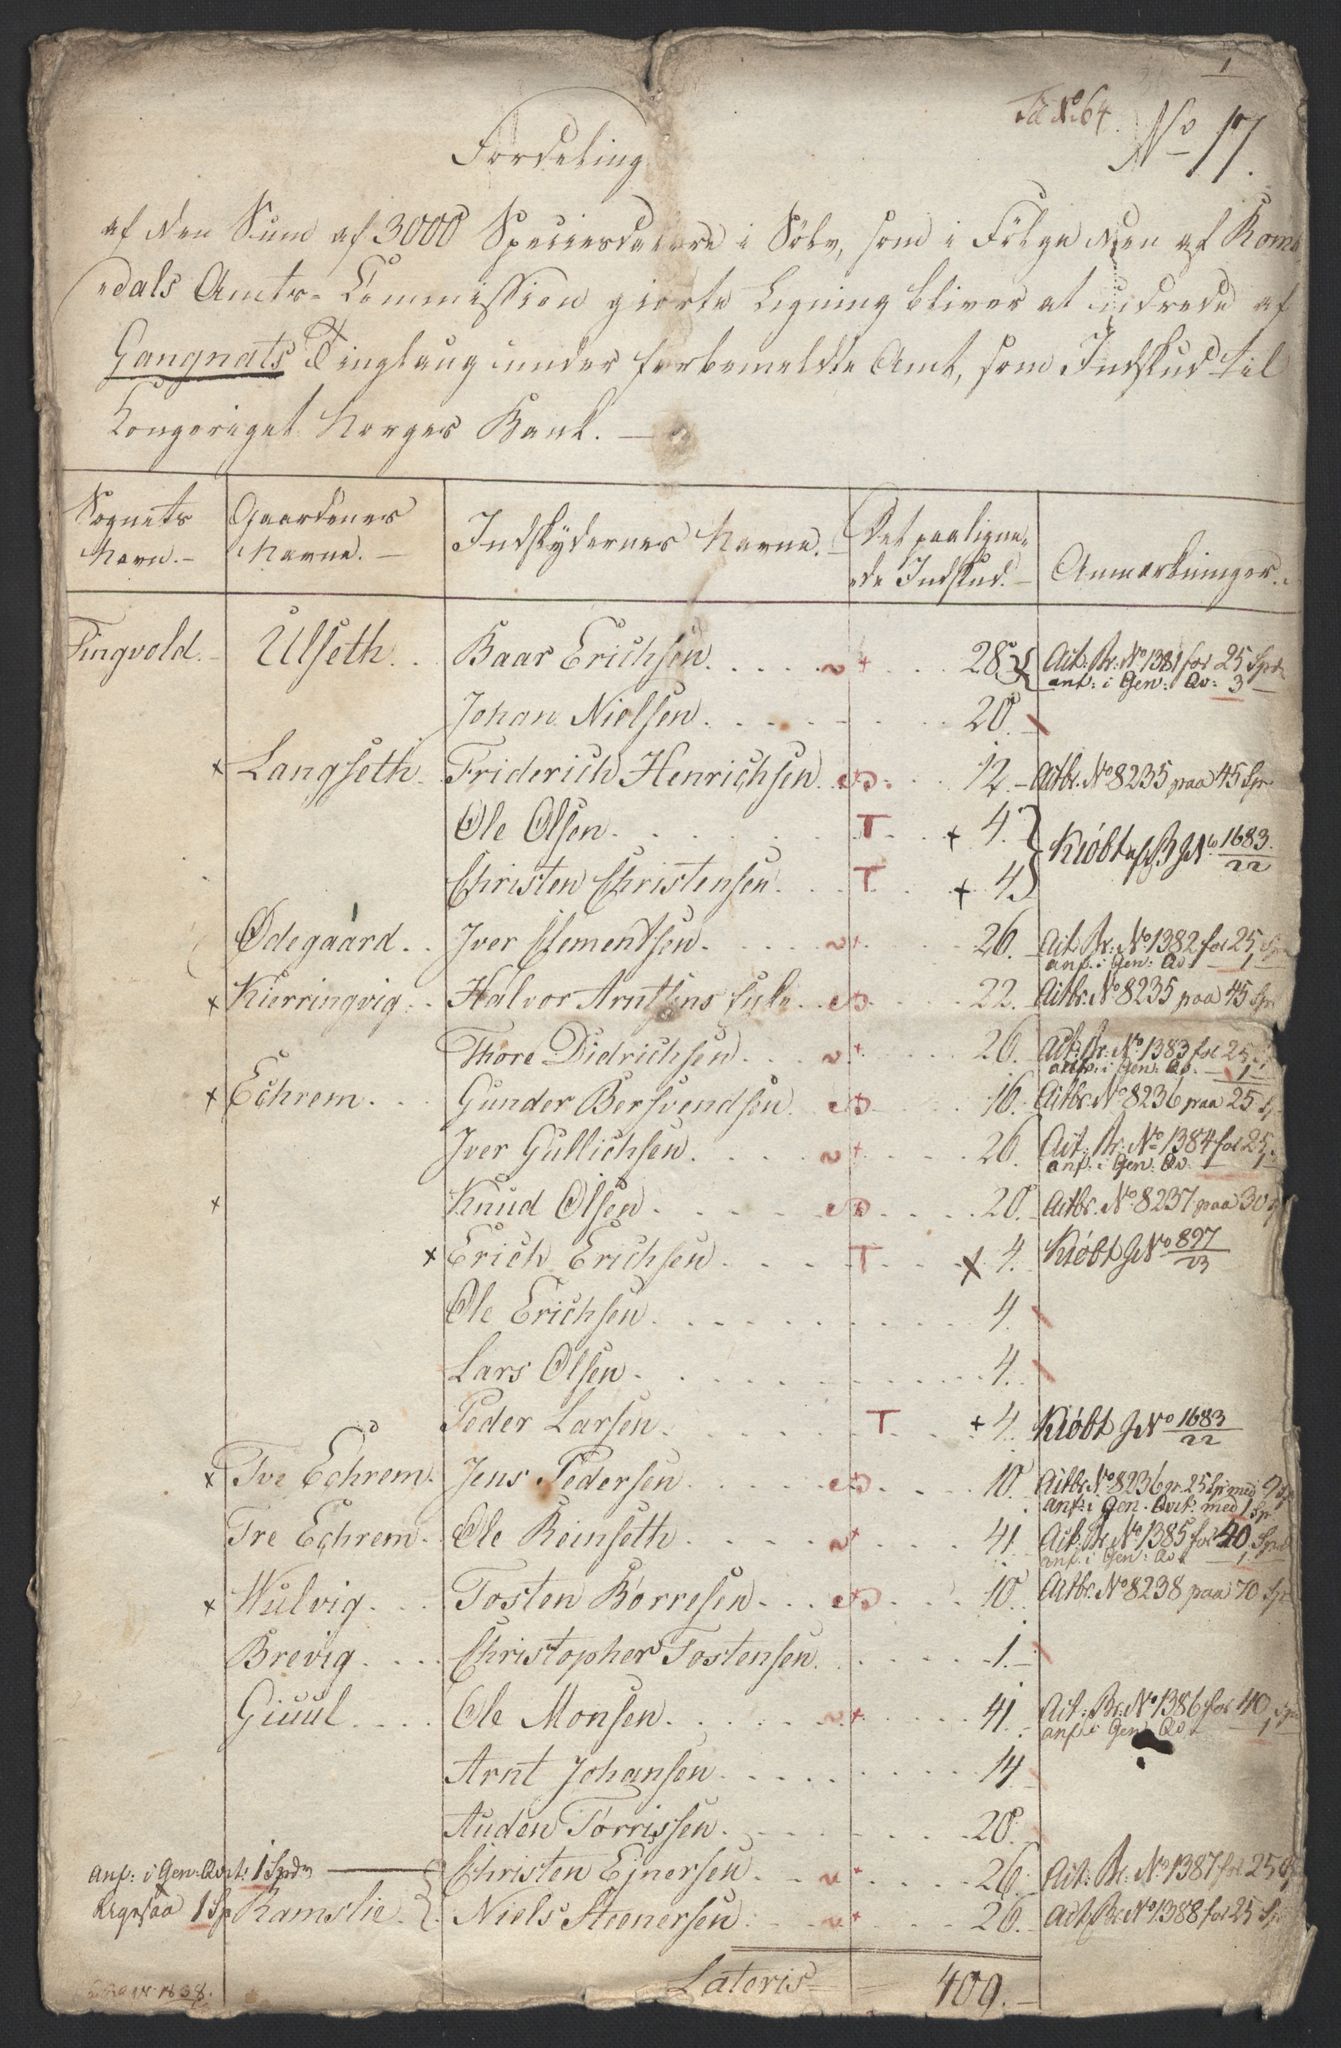 1
Td No 64
No 17.
Fordeling
af den Sum af 3000 Speciesdalere i Sölv, som i Fölge den af Roms-
dals Amts-Commission giorte Ligning bliver at udrede af
Gangnats Tinglaug under forbemeldte Amt, som Indskud til
Kongeriget Norges Bank. —
Sognets Navn. — Gaardenes Navne. — Indskydernes Navne. — Det paalignede Indskud. — Anmærkninger.
Tingvold. Ulseth. Baar Erichsen. 28 Act: Br: No 1381 for 25 Spd
anf: i Gen: Qv: 3 —
Johan Nielsen. 20.
x Langseth Friderich Henrichsen 12. Actbr. No 8235 paa 45 Sp
Ole Olsen. T + 4. Kiöbt JNo 1683/22
Christen Christensen. T + 4.
Ødegaard. Iver Clementsen. 26. Act. Br. No 1382 for 25 Sp
anf. i Gen: Qv 1
x Kierringvig. Halvor Arntsens Enke 22. Actbr. No 8235 paa 45 Sp
Thore Didrichsen. 26. Act: Br. No 1383 for 25
anf: i Gen: Qv. 1
x Echrem. Gunder Bersvendsen 16. Actbr. No 8236 paa 25 S
Iver Gullichsen. 26. Act. Br. No 1384 for 25
anf: i Gen: Qv. 1
x Knud Olsen. 20. Actbr. No 8237 paa 30
x Erich Erichsen T x 4. Kiöbt JNo 897/23
Ole Erichsen. 4.
Lars Olsen. 4.
Peder Larsen T + 4. Kiöbt JNo 1683/22
x Tve Echrem. Jens Pedersen 10. Actbr. No 8236 gr. 25 Sp med 9 Sp
anf: i Gen. Qvit. med 1 Sp
Tre Echrem. Ole Reinseth. 41. Act. Br. No 1385 for 40 Spd
anf. i Gen: Qv 1
x Wulvig. Tosten Børresen. 10. Actbr. No 8238 paa 70 Sp
Brevig. Christopher Tostensen. 1.
Giuul. Ole Monsen. 41. Act: Br: No 1386 for 40 Sp
anf: i Gen Qv 1
Arnt Johansen. 14
Auden Tørrissen. 20.
anf: i Gen. Qvit: 1 Spdr — Christen Ejnersen. 26. Act: Br. No 1387 for 25 Sp
ligesaa 1 Sp Ramslie. Niels Steenersen. 26. Act: Br. No 1388 for 25 Sp
Lateris — 409. —